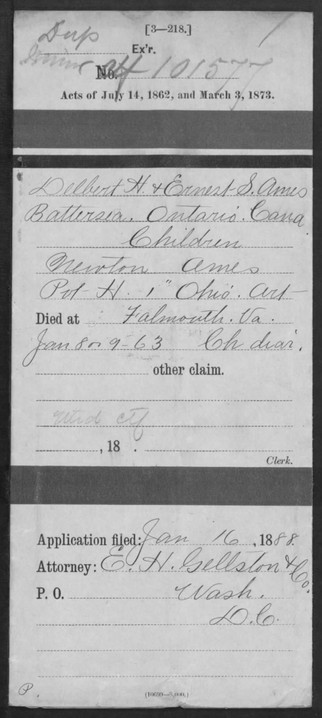 [3—218.]
Dup
Ex'r.
Minor
No. 
Acts of July 14, 1862, and March 3, 1873.
Delbert H. & Ernest S. Ames
Battersea. Ontario. Cana
Children
Newton Ames
Pvt H. 1" Ohio. Art
Died at Falmouth. Va.
Jan 8 or 9-63 Ch diar.
other claim.
, 18 .
Clerk.
Application filed: Jan 16, 1888.
Attorney: E. H. Gellston & Co.
P. O. Wash.
D.C.
P.